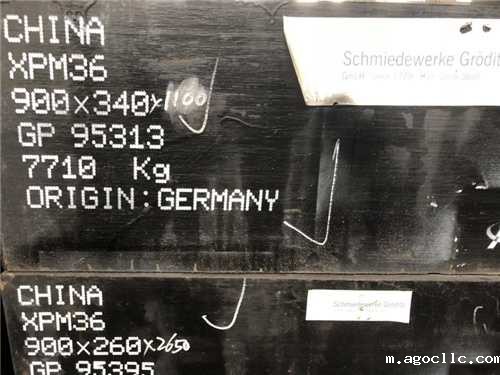 CHINA
XPM36
900x340x1100
GP 95313
7710 Kg
ORIGIN:GERMANY
Schmiedewerke Gröditz
CHINA
XPM36
900x260x2650
GP 95395
Schmiedewerke Gröditz
m.agocllc.com